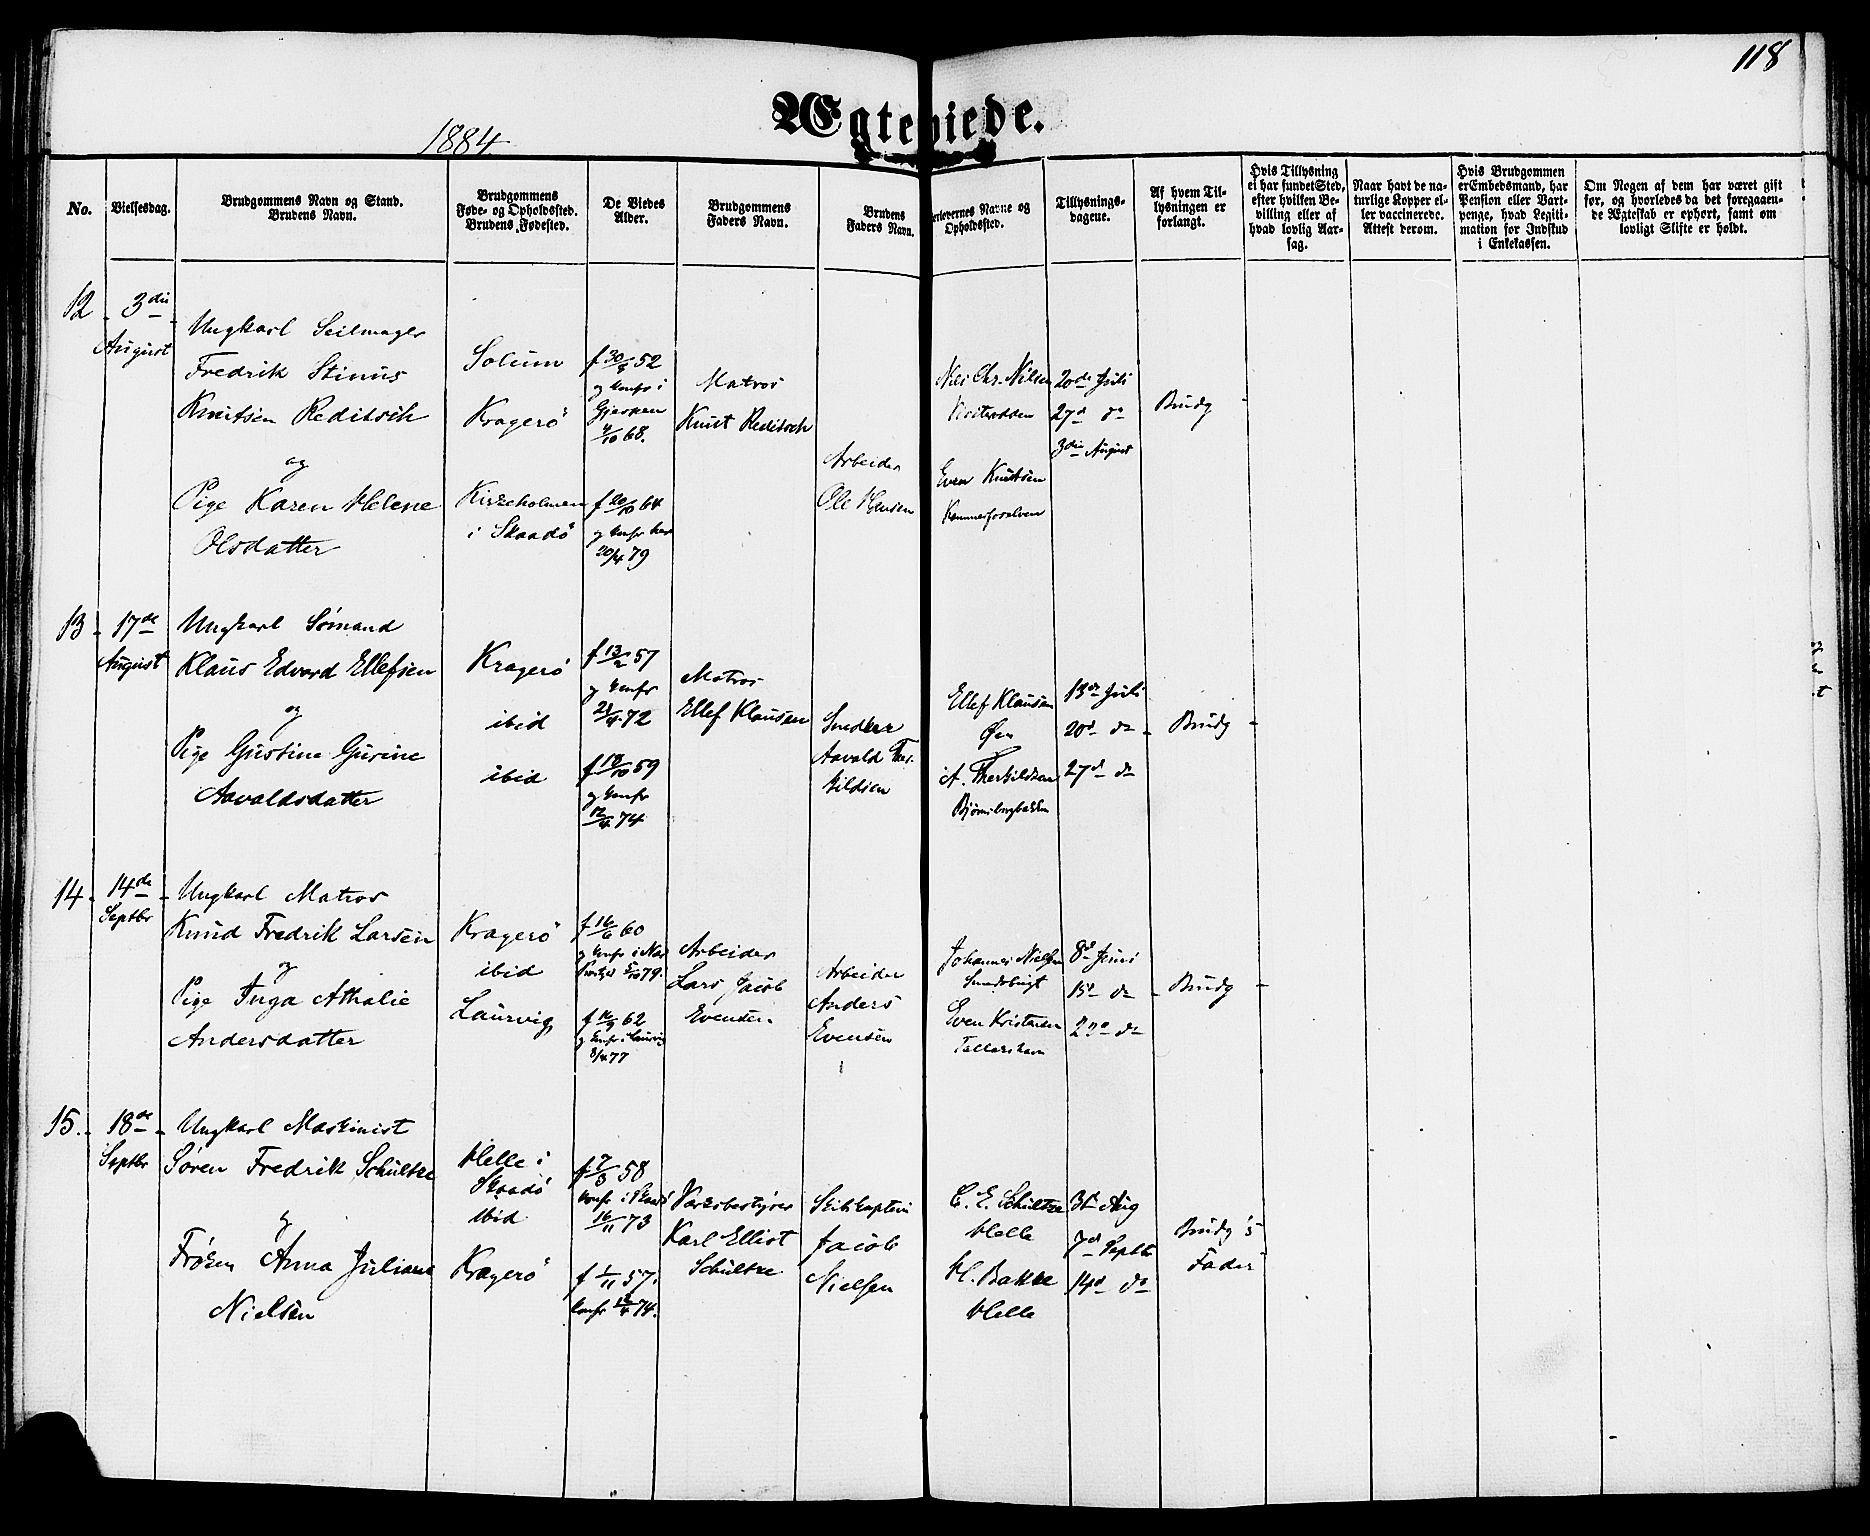 118
1884
Ægteviede.
No.
Vielsesdag.
Brudgommens Navn og Stand.
Brudens Navn.
Brudgommens
Føde- og Opholdssted.
Brudens Fødested.
De Viedes
Alder.
Brudgommens
Faders Navn.
Brudens
Faders Navn.
erlevernes Navne og
Opholdssted.
Tillysnings-
dagene.
Af hvem Til-
lysningen er
forlangt.
Hvis Tillysning
ei har fundet Sted,
efter hvilken Be-
villing eller af
hvad lovlig Aar-
sag.
Naar havt de na-
turlige Kopper el-
ler vaccinerede.
Attest derom.
Hvis Brudgommen
er Embedsmand, har
Pension eller Vart-
penge, hvad Legiti-
mation for Indskud
i Enkekassen.
Om Nogen af dem har været gift
før, og hvorledes da det foregaaen-
de Ægteskab er ophørt, samt om
lovligt Skifte er holdt.
12 3die
August
Ungkarl Seilmager
Fredrik Stinus
Knutsen Reditsch
og
Pige Karen Helene
Olsdatter
Solum
Kragerö
Kirkeholmen
i Skaadö
f 30/5 52
og konfr i
Gjerpen
4/10 68.
f 20/10 64
og konfr her
20/4 79
Matros
Knut Reditsch
Arbeider
Ole Hensen
Niels Chr. Nilsen
Even Knutsen
20de Juli
27de do
3die August
Brudg
13 17de
August
Ungkarl Sømand
Klaus Edvard Ellefsen
og
Pige Gustine Gurine
Aavaldsdatter
Kragerö
ibid
ibid
f 13/2 57
og konfr
21/4 72
f 18/10 59
og konfr
12/4 74
Matros
Ellef Klausen
Snedker
Aavald Ther-
kildsen
Ellef Klausen
Øen
A. Therkildsen
Bjørnsbergbakken
13de Juli
20de do
27de do
Brudg
14 14de
Septbr
Ungkarl Matros
Knud Fredrik Larsen
og
Pige Inga Athalie
Andersdatter
Kragerö
ibid
Laurvig
f 16/6 60
og konfr i
5/10 79.
f 14/9 62
og konfr i Laurvig
8/4 77
Arbeider
Lars Jacob
Evensen
Arbeider
Anders
Evensen
Johannes Nielsen
Smedsbugt
Even Kristensen
Tallakshavn
8de Juni
15de do
22de do
Brudg
15. 18de
Septbr
Ungkarl Maskinist
Søren Fredrik Schultze
og
Frøken Anna Juliane
Nielsen
Helle i
Skaadö
ibid
Kragerö
f 7/3 58
konfr i Skaadö
16/11 73
f 1/11 57.
konfr 12/4 74.
Værksbestyrer
Karl Elliot
Schultze
Skibskaptein
Jacob
Nielsen
C. E. Schultze
Helle
H. Bakke
Helle
31te Aug
7de Septbr
14de do
Brudg's
Fader